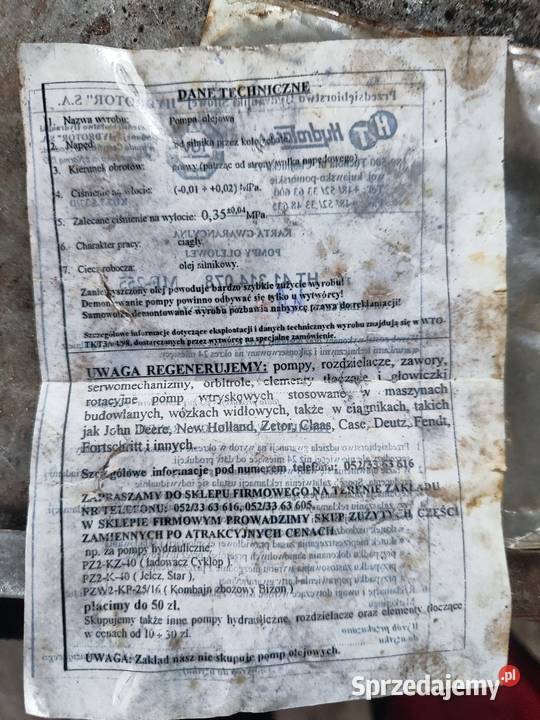 DANE TECHNICZNE
1. Nazwa wyrobu: Pompa olejowa
2. Napęd: od silnika przez koło zębate
3. Kierunek obrotów: prawy (patrząc od strony wałka napędowego)
4. Ciśnienie na wlocie: (-0,01 ÷ +0,02) MPa.
5. Zalecane ciśnienie na wylocie: 0,35±0,04 MPa.
6. Charakter pracy: ciągły.
7. Ciecz robocza: olej silnikowy.
Zanieczyszczony olej powoduje bardzo szybkie zużycie wyrobu!
Demontowanie pompy powinno odbywać się tylko u wytwórcy!
Samowolne demontowanie wyrobu pozbawia nabywcę prawa do reklamacji!
Szczegółowe informacje dotyczące eksploatacji i danych technicznych wyrobu znajdują się w WTO-
dostarczonych przez wytwórcę na specjalne zamówienie.
UWAGA REGENERUJEMY: pompy, rozdzielacze, zawory,
serwomechanizmy, orbitrole, elementy tłoczące i głowiczki
rotacyjne pomp wtryskowych stosowane w maszynach
budowlanych, wózkach widłowych, także w ciągnikach, takich
jak John Deere, New Holland, Zetor, Claas, Case, Deutz, Fendt,
Fortschritt i innych.
Szczegółowe informacje pod numerem telefonu: 052/33 63 616
ZAPRASZAMY DO SKLEPU FIRMOWEGO NA TERENIE ZAKŁADU
NR TELEFONU: 052/33 63 616, 052/33 63 605.
W SKLEPIE FIRMOWYM PROWADZIMY SKUP ZUŻYTYCH CZĘŚCI
ZAMIENNYCH PO ATRAKCYJNYCH CENACH.
np. za pompy hydrauliczne:
PZ2-KZ-40 ( ładowacz Cyklop ),
PZ2-K-40 ( Jelcz, Star ),
PZW2-KP-25/16 ( Kombajn zbożowy Bizon )
płacimy do 50 zł.
Skupujemy także inne pompy hydrauliczne, rozdzielacze oraz elementy tłoczące
w cenach od 10 ÷ 30 zł.
UWAGA: Zakład nasz nie skupuje pomp olejowych.
Sprzedajemy.pl